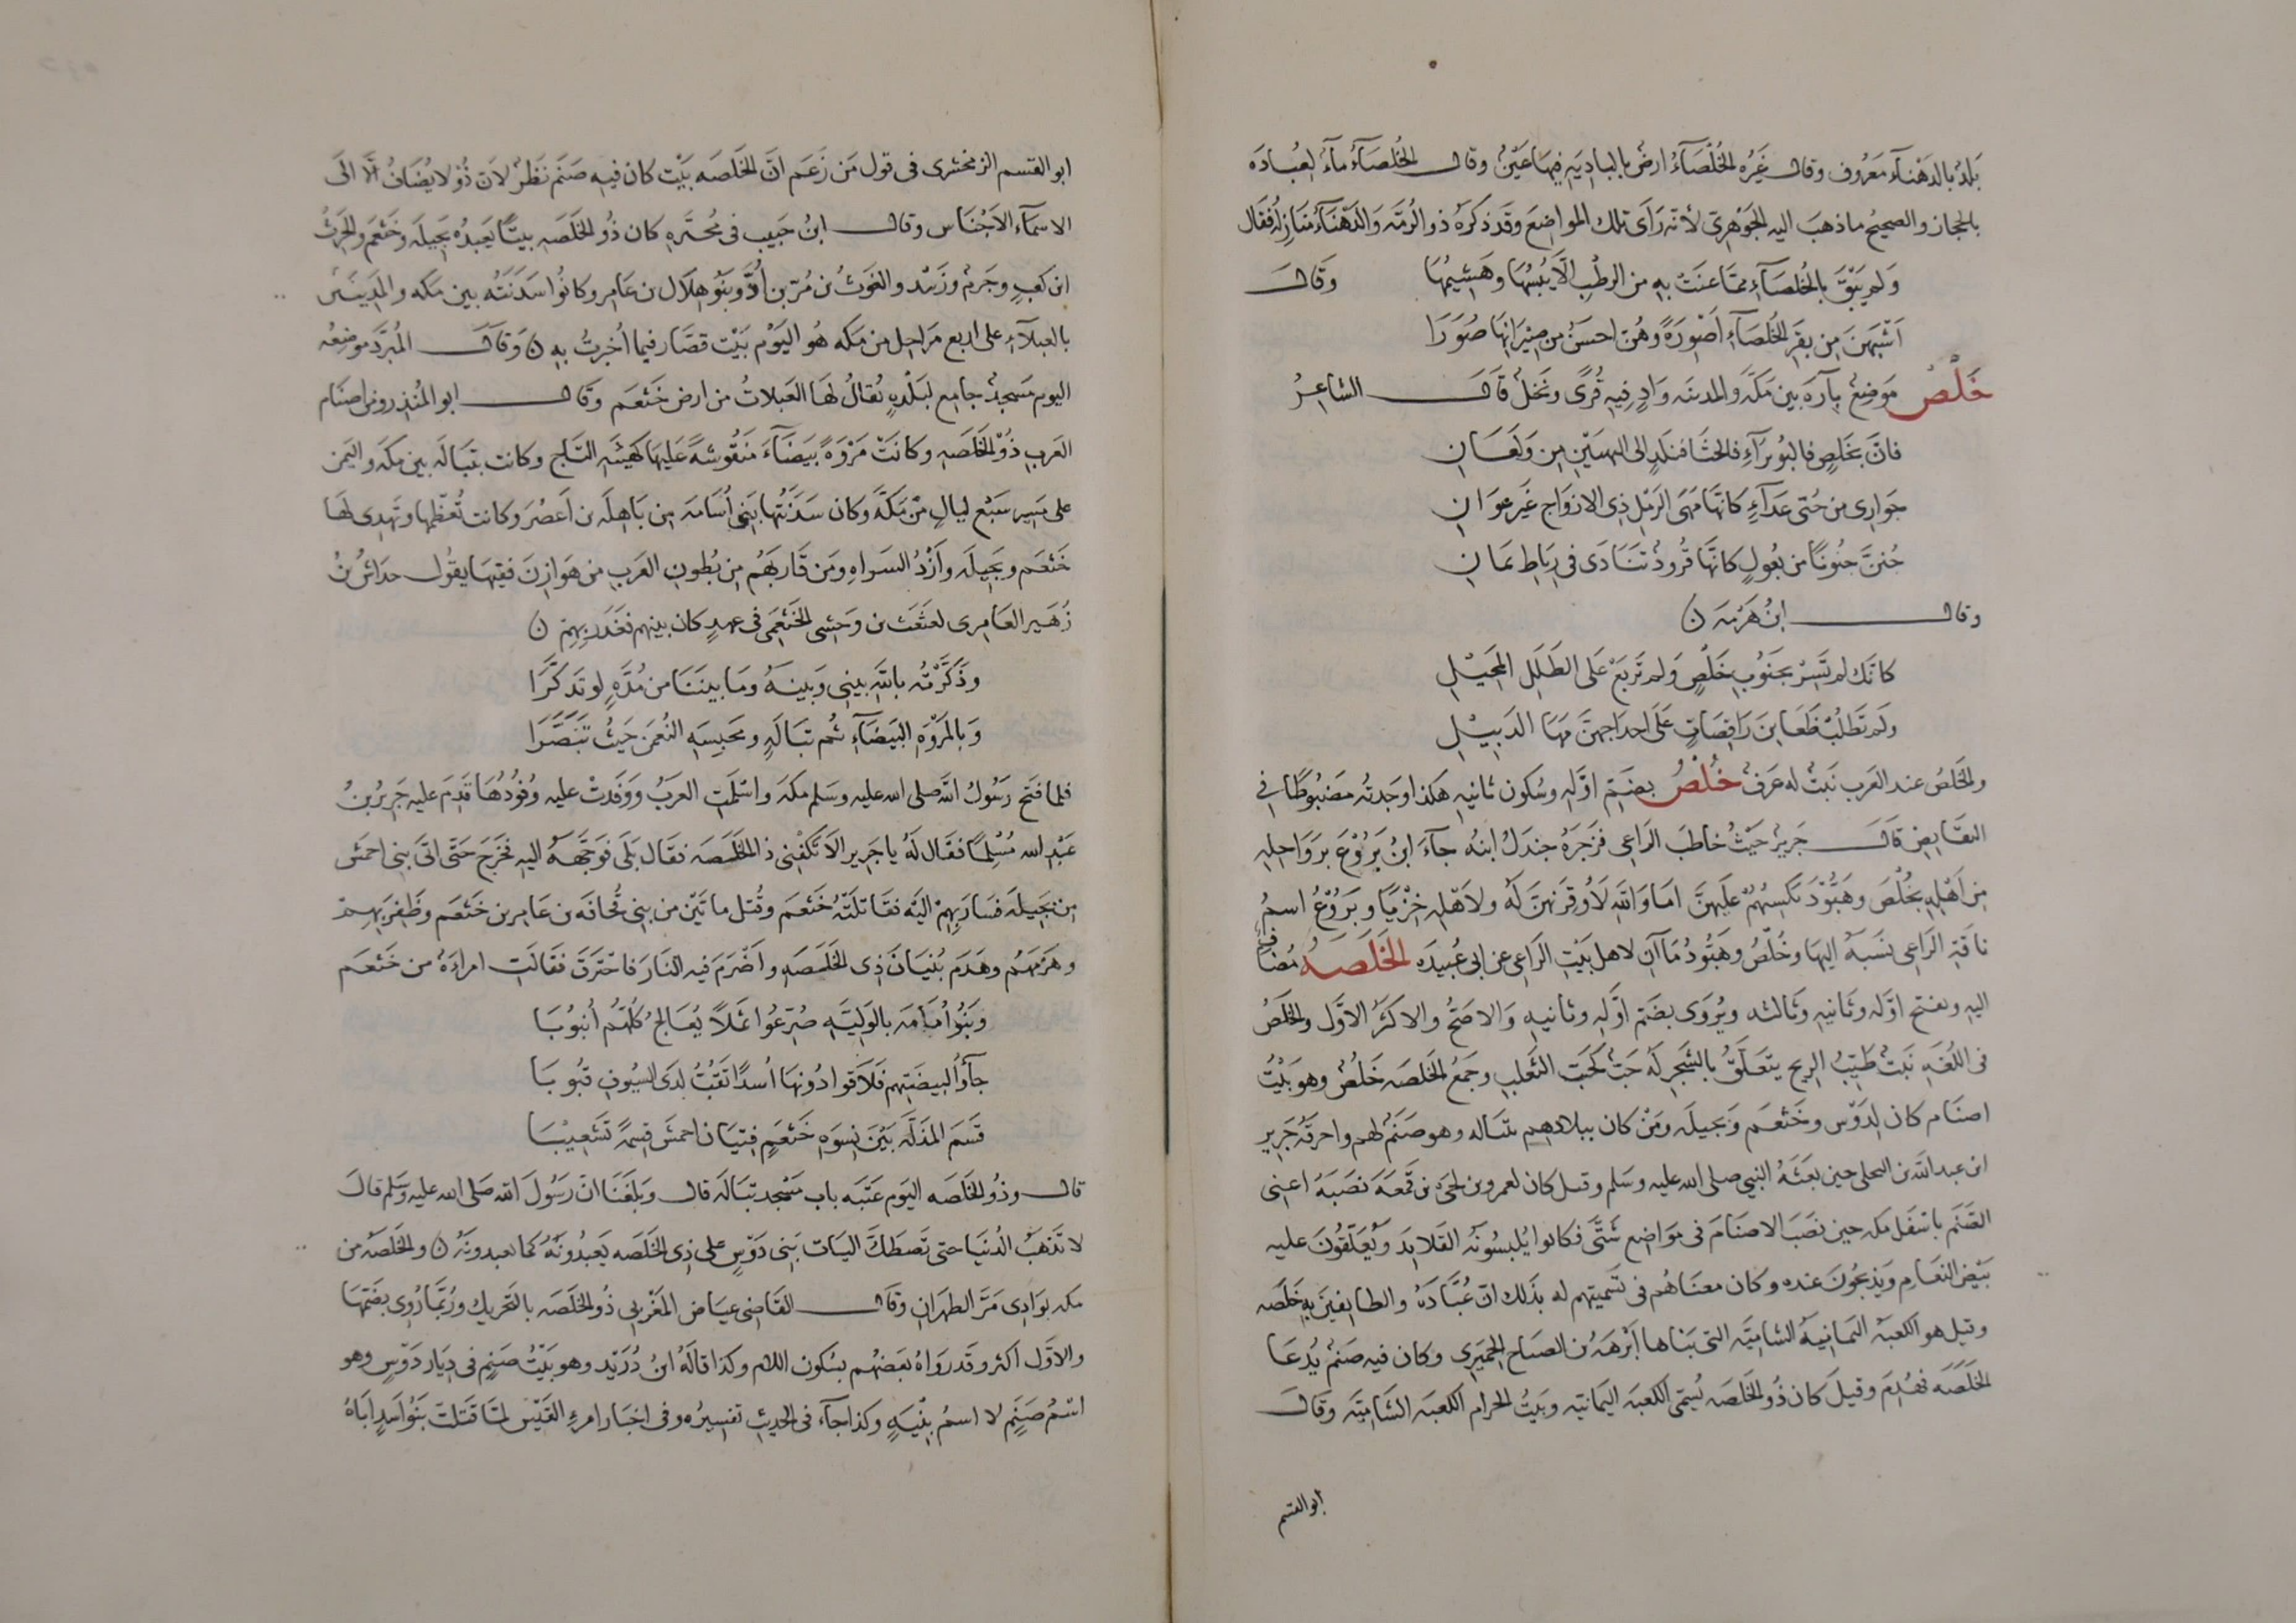 بَلَدٌ بالدَهْنآءِ مَعرُوف وقال غَيْرُه الخُلْصَآءُ ارضٌ بالبادِيَةِ فيها عَيْنٌ وقال الخُلصَآءُ مآءٌ لعُبادَه
بالحجاز والصحيحُ ما ذهبَ اليه الجَوْهَريّ لأنّه رَأى تلك المواضِعَ وقَد ذكرَهُ ذو الرُمّه وَالدَهْنَآءُ مَنازِلُه فقال
وَلم يَبْقَ بالخُلصَآءِ ممّا عنَتْ بِهِ من الرطْبِ الّا يَبْسُها وهَشِيمُها وَقالَ
اَشْبَهْنَ مِن بقَرِ الخُلصَاءِ اَعْيُنَهُ وهُنّ احسَنُ من صِيرَانِهَا صُوَرَا
خَلْصٌ مَوضِعٌ بآرَه بين مَكّهَ والمدينَه وَادٍ فِيه قُرًى ونخلٌ قَالَ الشاعِرُ
فانّ بخَلْصٍ فالبُوَيرَآءِ فالحَشَا فَنَلَدٍ الى النهيَيْنِ مِن وَبَعَانِ
جَوَارِى من حُتى عَدَآءٍ كانّها مَهَى الرَمْلِ ذِى الازوَاجِ غَيرَ عوَانِ
جُنِنَّ جُنونًا من بُعُولٍ كانّها قُرودٌ تَنَادَى فى رِبَاطِ يَمَانِ
وقال ابنُ هَرْمَه ن
كانّك لم تَسِرْ بجَنُوبِ خَلْصٍ وَلم تَربَعْ عَلى الطَلَلِ المُحَيْلِ
وَلم تَطلُبْ ظَعَاينَ رَاقِصَاتٍ عَلَى احداجِهنَّ مَهَا الدَبيْلِ
والخَلصُ عند العَرب نَبتٌ له عَرفٌ خُلْصٌ بضَمّ اوّلهِ وسُكون ثانيهِ هكذا وَجدتُه مضبُوطًا فى
النقَايضِ قَالَ جَريرٌ حَيْثُ خاطبَ الرَاعِى فَزَجرَهُ جندَلٌ ابنُه جآءَ ابنُ بَرْوَعَ برَوَاحِلِهِ
مِن اَهْلِهِ بخُلْصَ وهَبُّودَ يَكسِبُهُمْ عَليهنّ امَا وَاللهِ لَاُوقِرَنهنّ لَه ولاَهْلِه خِزْيًا وبَرْوَعُ اسمُ
ناقةِ الرَاعِى نسَبَهُ اليهَا وخُلْصٌ وهَبُّودُ مَآآنِ لاهل بَيتِ الرَاعِى عن ابى عُبَيدَه الخَلَصَهُ مُضَافٌ
اليه وبفتح اوّله وثَانيهِ وثَالثه ويُروَى بضَمّ اوّلهِ وثانيهِ وَالاصَحُّ والاكثَرُ الاوّل والخَلَصُ
فى اللُغَهِ نَبتٌ طَيّبُ الريح يتعَلّقُ بالشَجرِ لَهُ حَبٌّ كحَبّ الثَعلبِ وجَمعُ الخَلصَه خَلَصٌ وهو بَيْتُ
اصنَام كان لِدَوْسٍ وخَثعَم وَبَجيلَه ومَنْ كان ببلادِهِم بتَبَاله وهو صَنَمٌ لهم واحرقَهُ جَريرُ
ابن عبد الله بن البجلى حين بعَثَهُ النبى صلى الله عليه وسلم وقيل كان لعمرو بن لحَى بن قَمَعَه نصَبَهُ اعنى
الصَنَم باسْفَل مكه حين نصَبَ الاصنَامَ فى مَواضِع شَتَّى فكانوا يُلبسُونَه القلايدَ وَيُعَلّقُونَ عليه
بَيْضَ النعَامِ وَيذبحُونَ عنده وكان معنَاهُم فى تَسميتهم له بذَلك انّ عُبَّادَهُ والطايفينَ بِه خَلَصَه
وقيل هو الكعبهُ اليمَانيهُ الشاميّه التى بَناها اَبْرهَهُ بن الصبَاح الحِميَرى وكان فيه صَنمٌ يُدعَا
الخَلَصَه فهُدِمَ وقيلَ كان ذُو الخَلَصَه يُسَمّى الكعبَه اليمَانيّه وبَيتُ الحرَام الكعبَه الشَاميّه وقَالَ
ابو القسم
ابو القسم الزمخشرى فى قول مَن زَعَم انَّ الخَلَصَه بَيْت كان فيه صَنَم نَظَرٌ لانّ ذُو لا يُضَافُ الّا الَى
الاسمآء الاجنَاس وقال ابنُ حَبيب فى مُحَبَّرِه كان ذُو الخَلَصَه بيتًا يَعبدُه بَجِيلَه وخَثعَم والحَرثُ
ابن كَعبٍ وجَرمٌ وزَبيد والغَوثُ بن مُرّ بن اُدٍّ وبَنُو هلَال بن عَامِر وكانُوا سَدَنَتَه بين مَكه والمدِينَه
بالعبلآءِ على اربع مَراحِل من مَكه هُو اليَوْم بَيْت قصَّار فيما اُخبرتُ به ن وَقالَ المُبَرّد مَوضِعُه
اليوم مَسجدٌ جامِع لبَلْدَهٍ يُقالُ لهَا العَبلاتُ من ارض خَثعَم وقَال ابو المُنذِر ومن اصنَام
العَرب ذُو الخَلصَهِ وكانَتْ مَرْوَهً بَيضَآءَ مَنقُوشهً عَليهَا كهيئه التَّاج وكانت بتبَالَه بين مكه واليَمن
على مَسِيرِ سَبْع ليالٍ مِنْ مَكَّهَ وكان سَدَنَتُها بَنِى اُسَامَه مِن بَاهِلَه بن اَعصُرَ وكانت تُعَظّمها وتَهدِى لهَا
خَثعَم وبَجِيلَه وَاَزْدُ السَراهِ ومَن قارَبهُم مِن بُطونِ العَربِ من هَوَازِنَ ففيهَا يقُول خداشُ بنُ
زُهَير العَامِرى لعَثعَث بن وَحشى الخَثعَمِى فى عهدٍ كان بينهم فغَدَر بهم ن
وذَكَّرْتُه باللهِ بينِى وَبينَهُ ومَا بيننَا من مُدَّهٍ لو تَذَكَّرَا
وَبالمَرْوَهِ البَيضَآءِ ثم تبَالَهٍ ومَحبِسِهِ النُعمَنَ حَيثُ تَنَصَّرَا
فلما فتَح رَسُولُ الله صلى الله عليه وسَلم مكهَ واسْلَمتِ العَرَبُ وَوَفَدتْ عليه وُفُودُهَا قَدِمَ عليه جَريرُ بنُ
عَبْدِ الله مُسْلِمًا فقَال لَهُ يا جَرير اَلاَ تَكْفينى ذا الخَلصَه فقَال بَلَى فوَجّهَهُ اليهِ فخَرجَ حَتّى اتَى بنِى احمسَ
مِن بَجِيلَه فسَارَ بهِمْ اليَه فقَاتَلتهُ خَثعَم وقُتل ماتَيْن من بنِى قُحافَه بن عَامِر بن خَثعَم وظَفِرَ بهِمْ
وهزَمهُم وهَدَم بُنيَانَ ذِى الخَلصَه واَضْرَمَ فيه النَارَ فاحتَرقَ فقَالتِ امراَهٌ من خَثعَم
وبَنُو اُمَامَه بالوَلِيّهِ صُرّعُوا ثَمَلًا يُعَالِجُ كُلّهُم اُنبُوبَا
جآؤُا لبيضَتِهم فَلاَقوا دُونهَا اُسدًا تَقُبُّ لدَى السُيوفِ قبُوبَا
قَسَمَ المذَلّهَ بَيْنَ نِسوَهِ خَثعَمٍ فِتيَانُ احمسَ قِسمهً تَشعِيْبَا
قال وذُو الخَلَصَه اليَوم عَتَبَه باب مَسْجد تَبَالَه قال وبَلَغَنَا انّ رَسُولَ الله صَلى الله عليه وَسَلم قالَ
لا تَذهَبُ الدُنيَا حتى تَصطَكّ اليَات بَنِى دَوْسٍ على ذِى الخَلَصَه يَعبُدُونَهُ كما يعبدونَهُ ن والخَلَصَهُ من
مكه بوَادِى مَرّ الظهرَانِ وقَال القَاضِى عيَاض المَغْربى ذُو الخَلَصَه بالتَحريك ورُبّما رُوى بضَمّها
والاَوّل اكثر وقَد رَوَاهُ بعَضهُم بسُكون اللام وكذا قالَهُ ابنُ دُرَيْد وهو بَيْتُ صَنمٍ فى ديَار دَوْسٍ وهو
اسْمُ صَنمٍ لا اسمُ بِنْيَهٍ وكذا جآء فى الحديثِ تفسِيرُه وفى اخبَار امرءِ القَيْسِ لمّا قَتَلتْ بَنُو اَسَدٍ اَبَاهُ